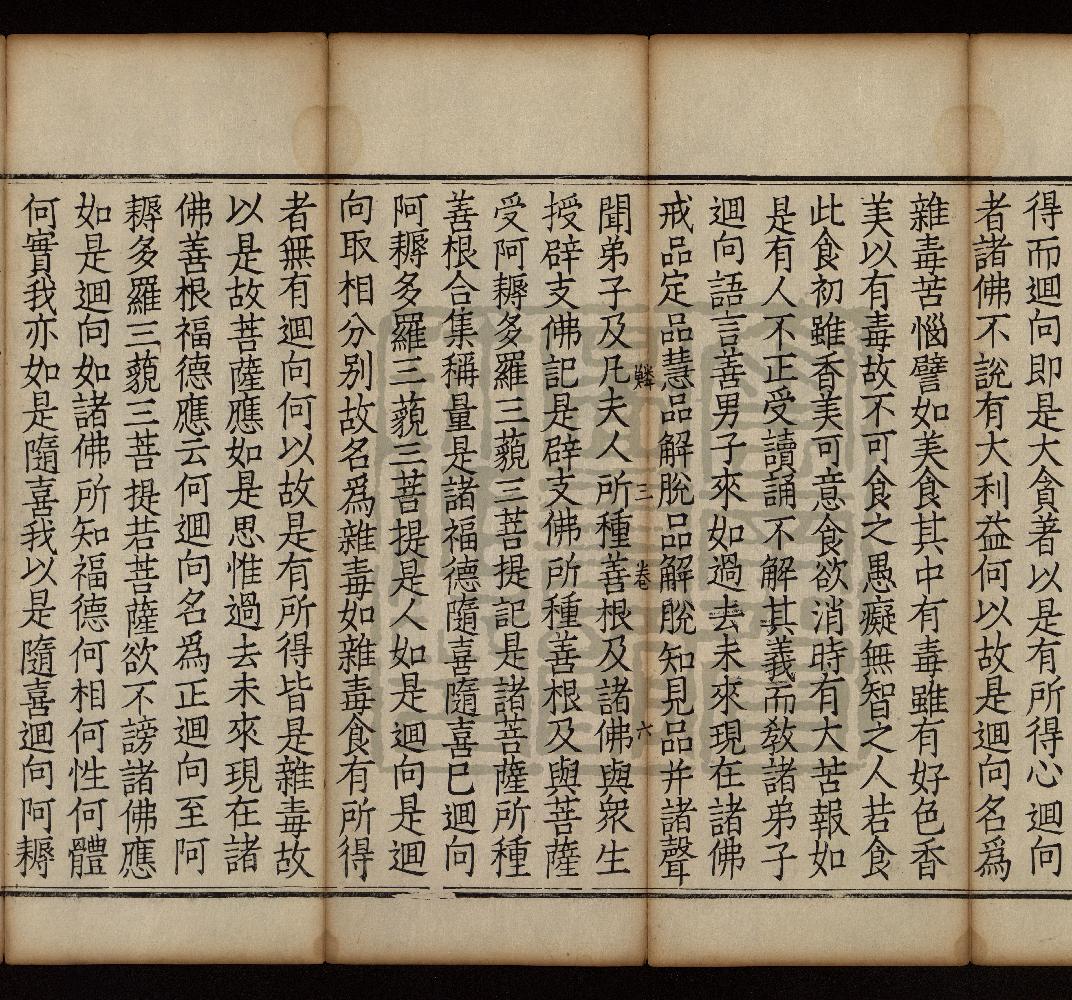 得而迴向即是大貪著以是有所得心迴向
者諸佛不說有大利益何以故是迴向名爲
雜毒苦惱譬如美食其中有毒雖有好色香
美以有毒故不可食之愚癡無智之人若食
此食初雖香美可意食欲消時有大苦報如
是有人不正受讀誦不解其義而教諸弟子
迴向語言善男子來如過去未來現在諸佛
戒品定品慧品解脫品解脫知見品并諸聲
三 卷 六
聞弟子及凡夫人所種善根及諸佛與眾生
授辟支佛記是辟支佛所種善根及與菩薩
受阿耨多羅三藐三菩提記是諸菩薩所種
善根合集稱量是諸福德隨喜隨喜已迴向
阿耨多羅三藐三菩提是人如是迴向是迴
向取相分別故名爲雜毒如雜毒食有所得
者無有迴向何以故是有所得皆是雜毒故
以是故菩薩應如是思惟過去未來現在諸
佛善根福德應云何迴向名爲正迴向至阿
耨多羅三藐三菩提若菩薩欲不謗諸佛應
如是迴向如諸佛所知福德何相何性何體
何實我亦如是隨喜我以是隨喜迴向阿耨